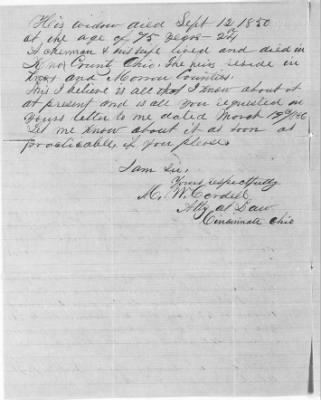 His widow died Sept 12 1850
at the age of 75 years
Ackerman & his wife lived and died in
Knox County Ohio. The heirs reside in
Knox and Morrow Counties.
This I believe is all that I know about it
at present and is all you requested in
yours letter to me dated March 19th
Let me know about it as soon as
practicable, if you please.
I am Sir,
Yours respectfully
M. W. Cordell
Atty at Law
Cincinnati Ohio